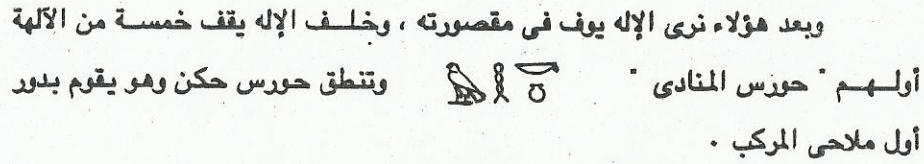 وبعد هؤلاء نرى الإله يوف فى مقصورته ، وخلف الإله يقف خمسة من الآلهة
أولهم " حورس المنادى " 𓅃 𓎛 𓎡 𓏌 وتنطق حورس حكن وهو يقوم بدور
أول ملاحى المركب .